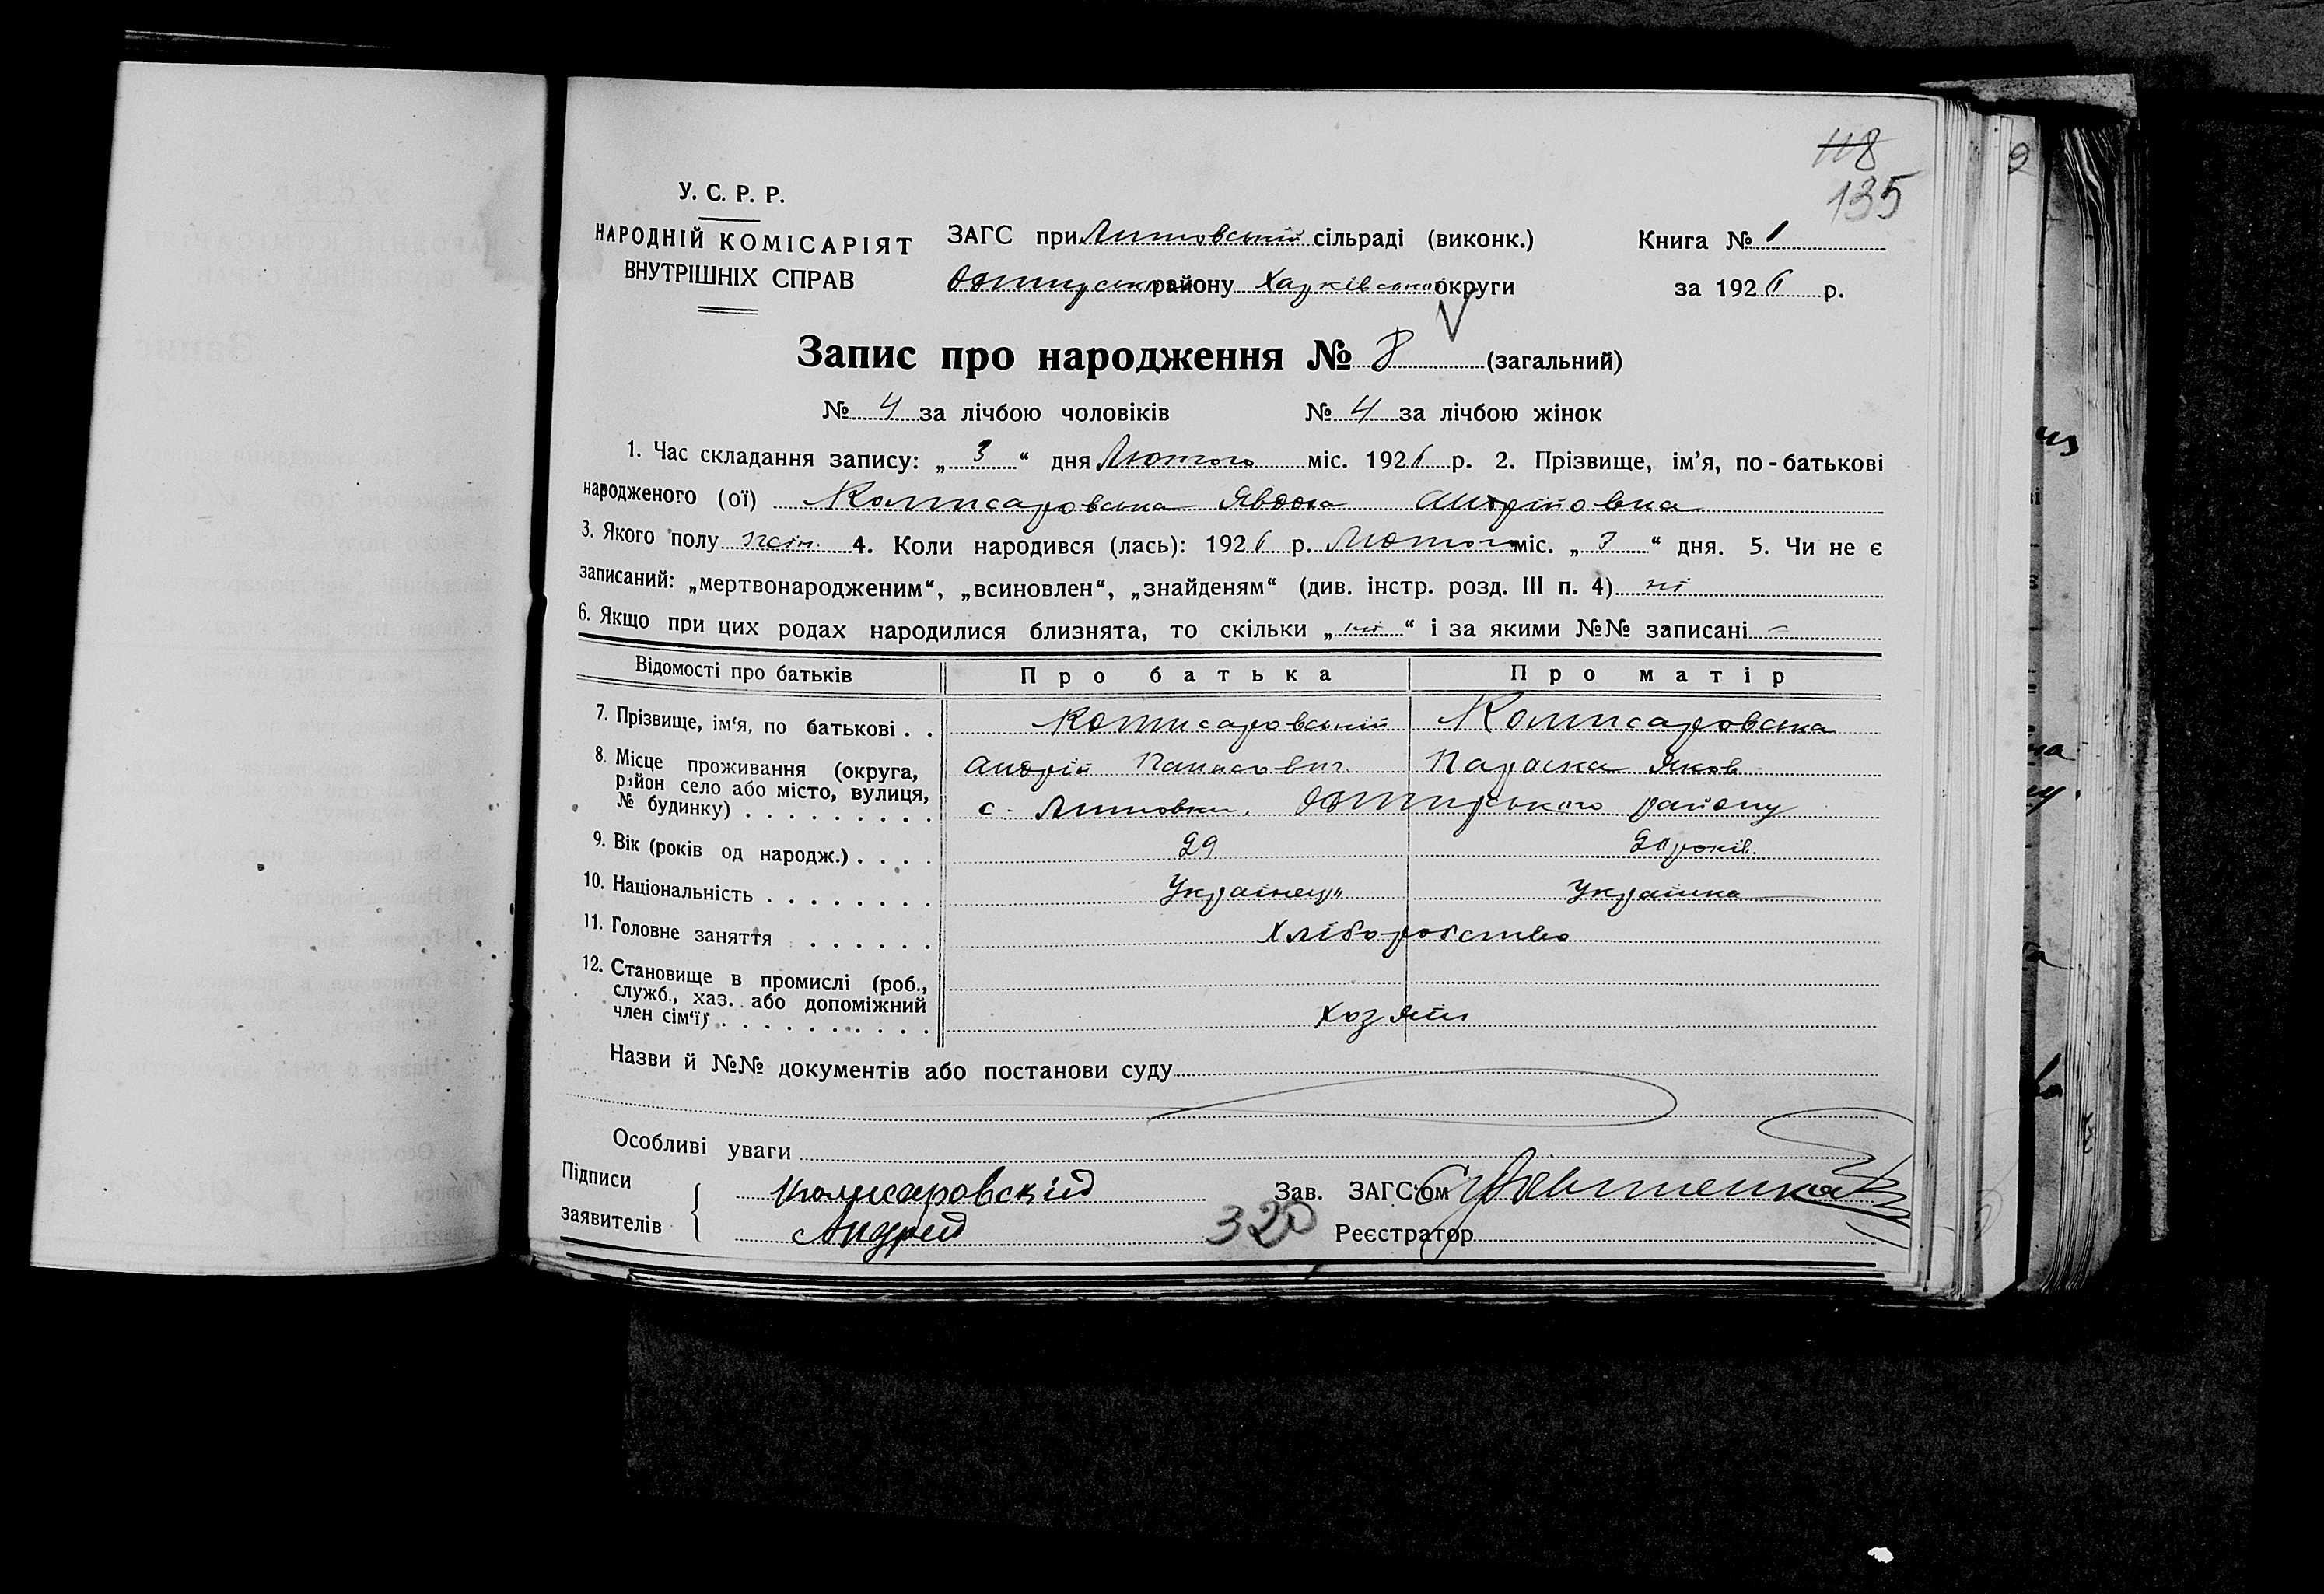 118
135
У. С. Р. Р.
НАРОДНІЙ КОМІСАРІЯТ
ВНУТРІШНІХ СПРАВ
ЗАГС при Литовській сільраді (виконк.)
району Харківської округи
Книга № 1
за 1926 р.
Запис про народження № 8 (загальний)
№ 4 за лічбою чоловіків № 4 за лічбою жінок
1. Час складання запису: „ 3 “ дня Лютого міс. 1926 р. 2. Прізвище, ім’я, по-батькові
народженого (ої) Комисаровська Явдоха Андріїовна
3. Якого полу жін. 4. Коли народився (лась): 1926 р. Лютого міс. „ “ дня. 5. Чи не є
записаний: „мертвонародженим“, „всиновлен“, „знайденям“ (див. інстр. розд. III п. 4) ні
6. Якщо при цих родах народилися близнята, то скільки „ ні “ і за якими №№ записані –
Відомості про батьків Про батька Про матір
7. Прізвище, ім‘я, по батькові . . Комисаровський Комисаровська
8. Місце проживання (округа, район село або місто, вулиця, № будинку) . . . . . . . . . Андрій Панасович Параска Яков
с. Литовки, району
9. Вік (років од народж.) . . . . 29 років.
10. Національність . . . . . . . . Українець Українка
11. Головне заняття . . . . . . Хліборобство
12. Становище в промислі (роб.,
служб., хаз. або допоміжний
член сім‘ї) . . . . . . . . . . Хозяїн
Назви й №№ документів або постанови суду
Особливі уваги
Підписи
заявителів
Комисаровскій
Андрей
320
Зав. ЗАГС‘ом
Реєстратор